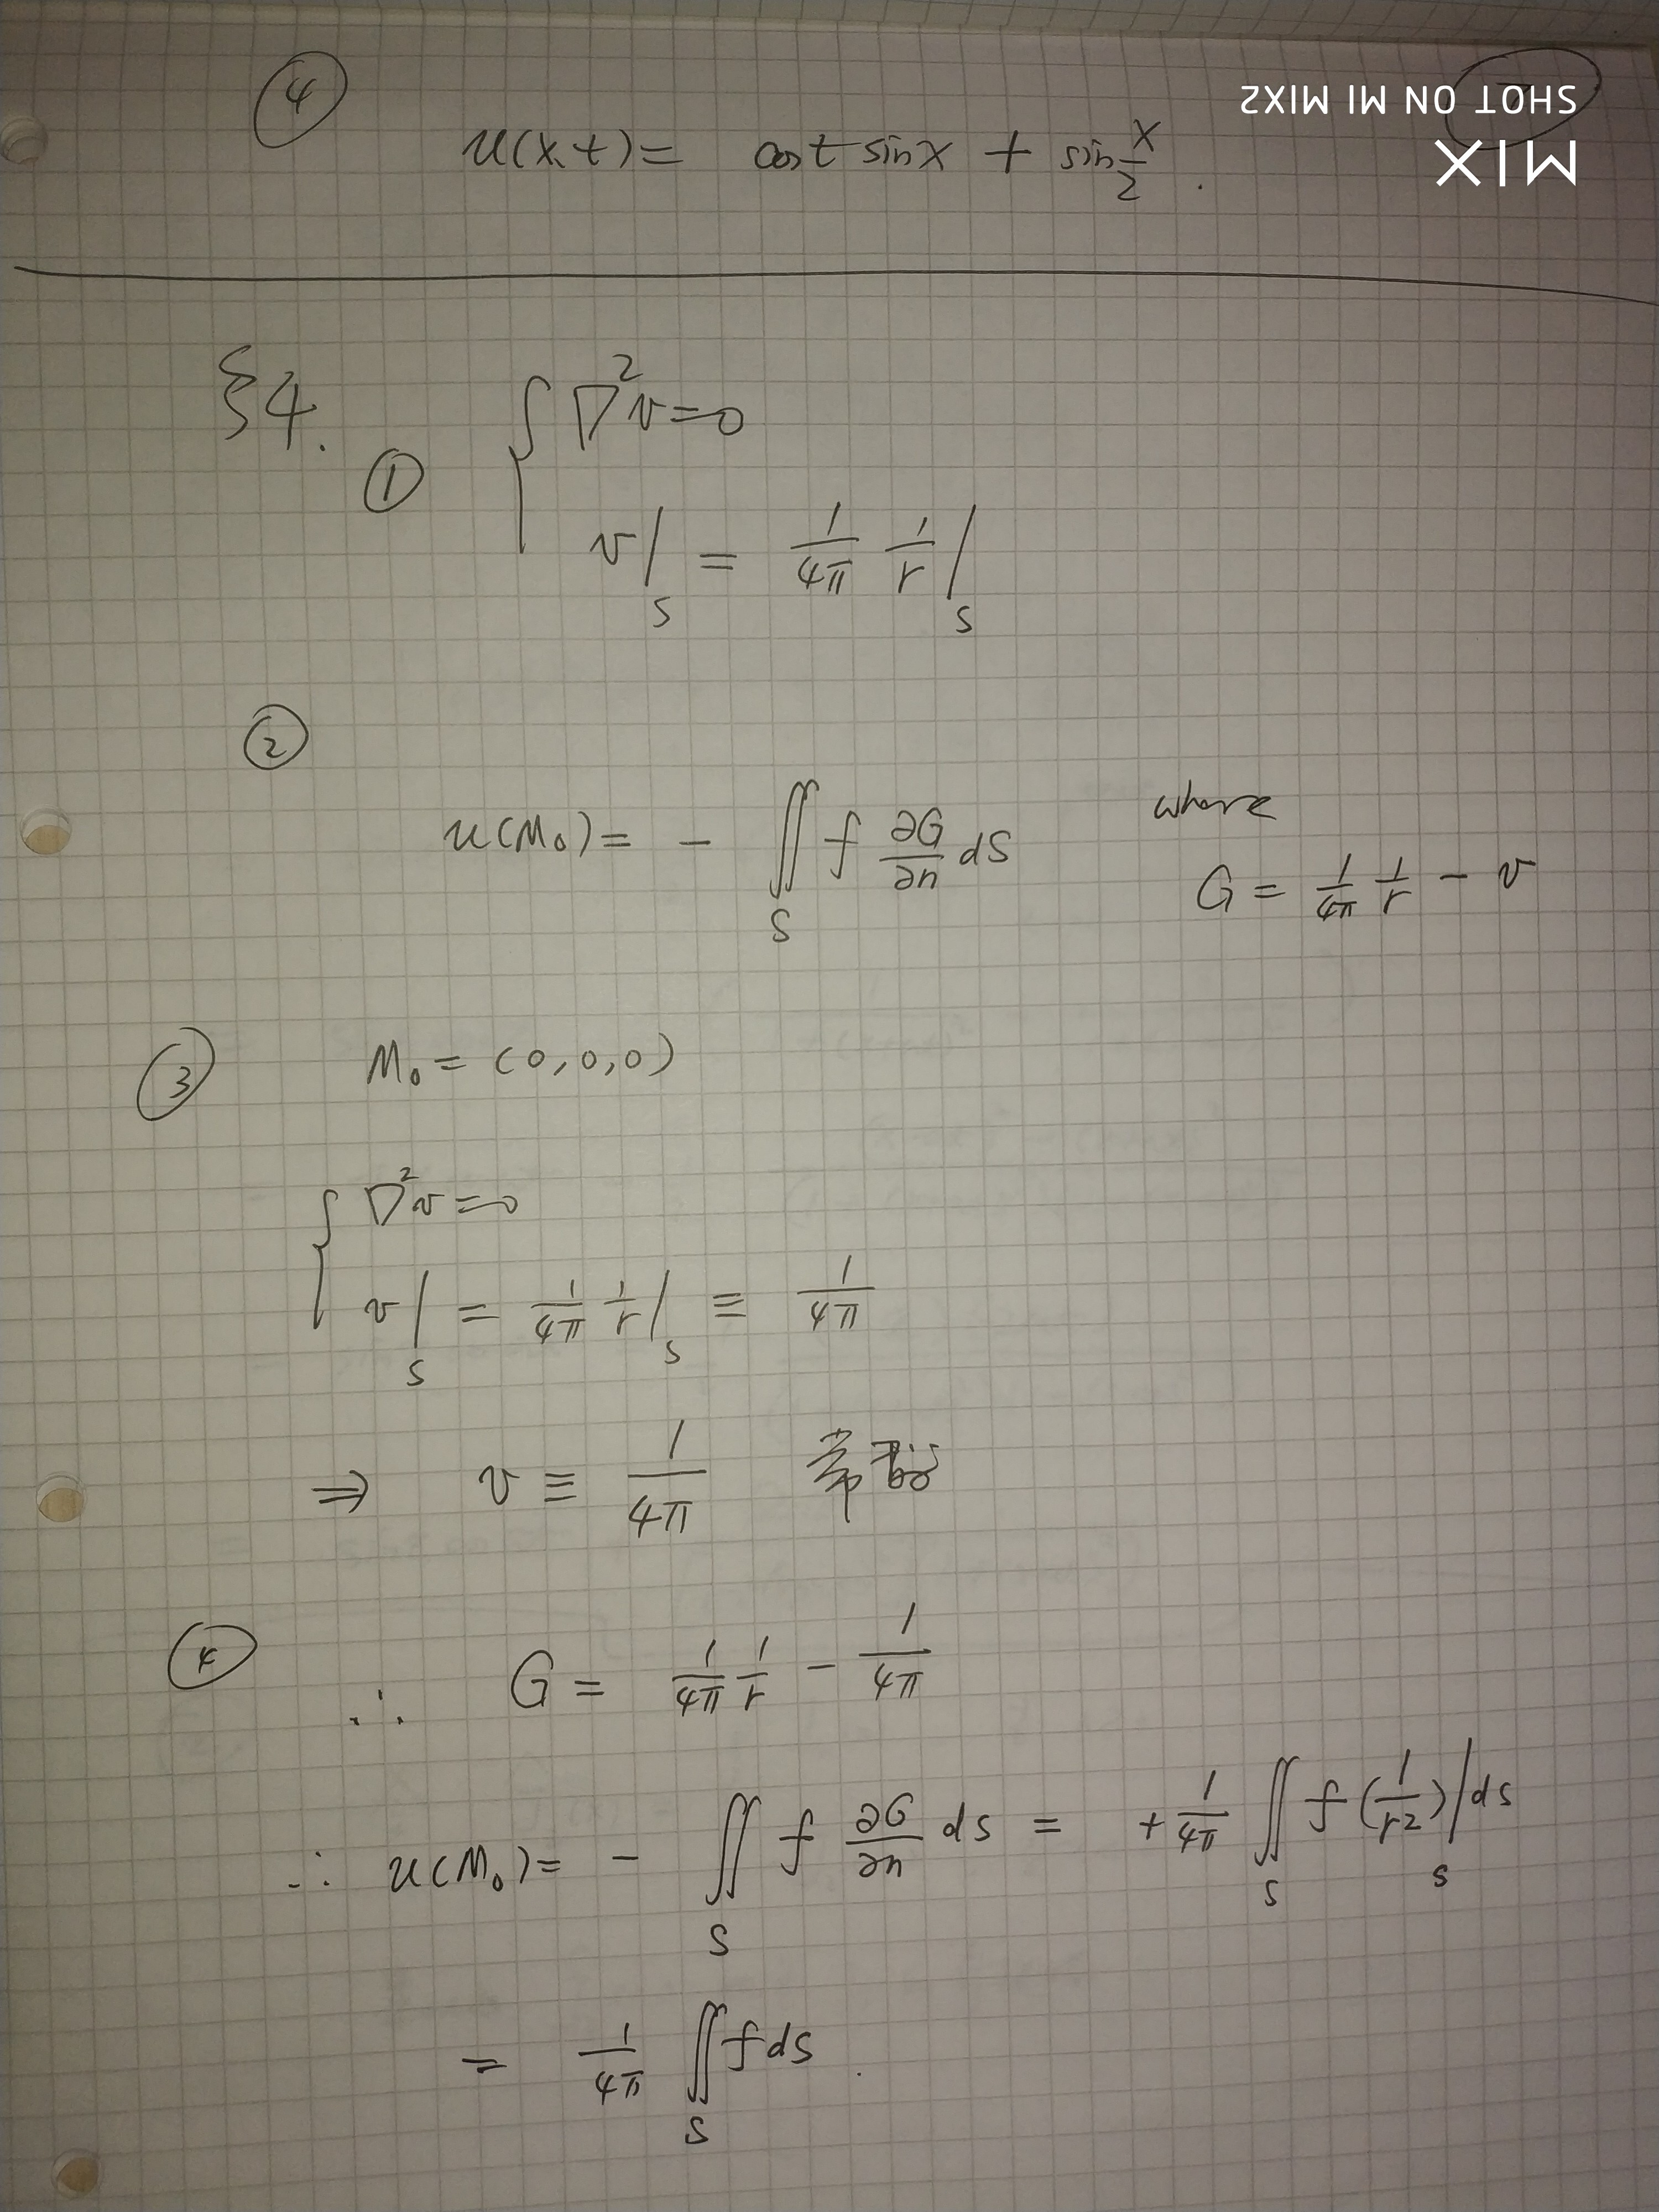 ④
SHOT ON MI MIX2
MIX
u(x,t) = cost sinx + sin x/2 .
§4.
① { ∇²v=0
v|s = 1/4π 1/r |s
②
u(M₀) = - ∬s f ∂G/∂n ds where
G = 1/4π 1/r - v
③ M₀ = (0,0,0)
{ ∇²v=0
v|s = 1/4π 1/r |s ≡ 1/4π
⇒ v ≡ 1/4π 常
④ ∴ G = 1/4π 1/r - 1/4π
∴ u(M₀) = - ∬s f ∂G/∂n ds = + 1/4π ∬s f (1/r²)|s ds
= 1/4π ∬s f ds .